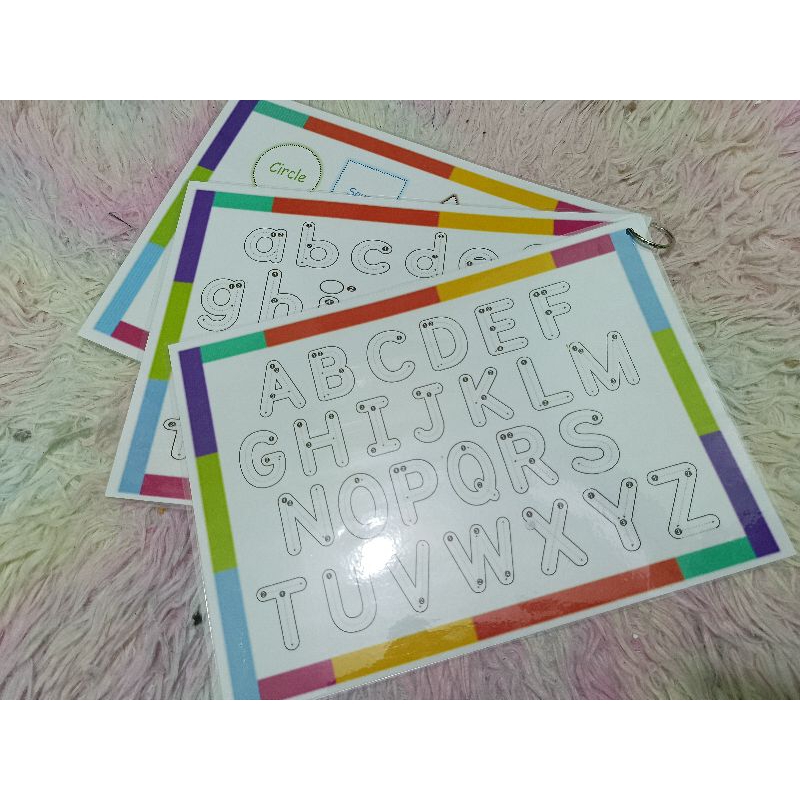 Circle
a b c d e
g h i
t
A B C D E F
G H I J K L M
N O P Q R S
T U V W X Y Z